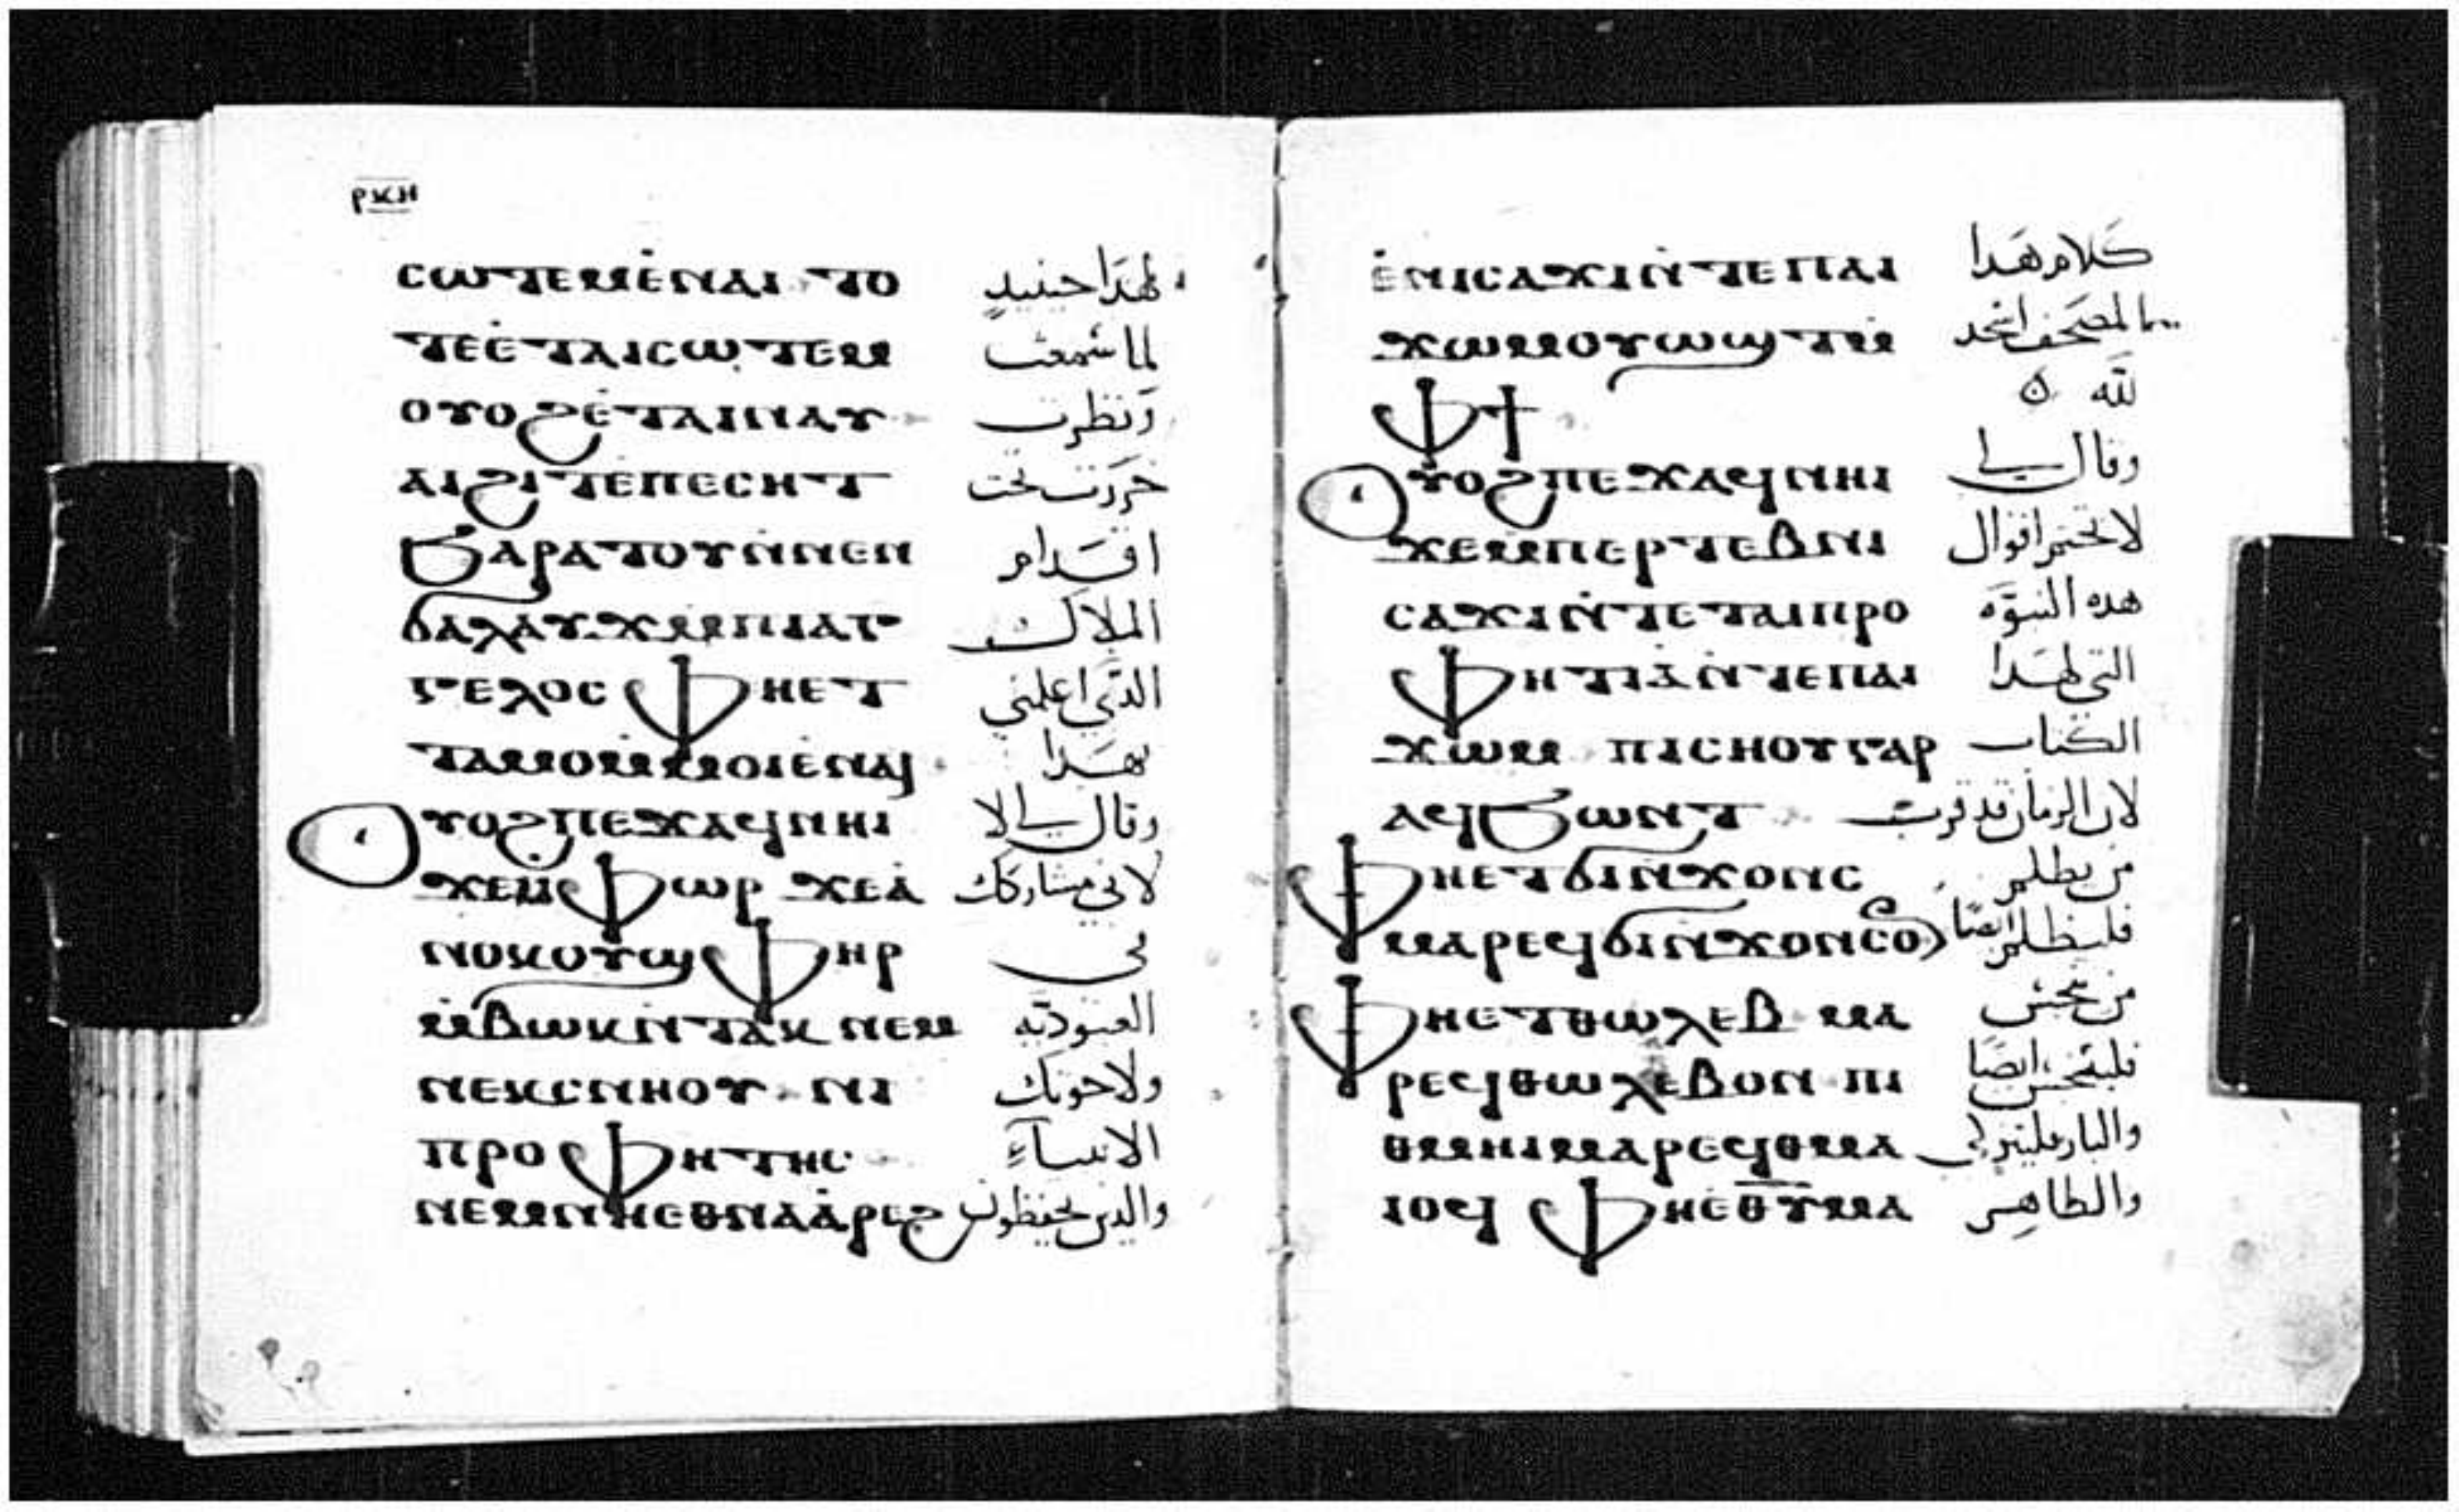 ⲣⲕⲏ
ⲥⲱⲧⲉⲙⲉ̇ⲛⲁⲓ ⲧⲟ لهَدَا حينيدٍ
ⲧⲉⲉ̇ⲧⲁⲓⲥⲱⲧⲉⲙ لما سمعت
ⲟⲩⲟϩⲉ̇ⲧⲁⲓⲛⲁⲩ وَنظرت
ⲁⲓϩⲓⲧⲉ̇ⲡⲉⲥⲏⲧ خرَرت تحت
ϧⲁⲣⲁⲧⲟⲩⲛ̇ⲛⲉⲛ اقدَام
ϭⲁⲗⲁⲩϫⲙ̇ⲡⲓⲁⲅ الملاك
ⲅⲉⲗⲟⲥ ⲫⲏⲉⲧ الدَي اعلمني
ⲧⲁⲙⲟⲙ̇ⲙⲟⲓⲉ̇ⲛⲁⲓ بهَدا
ⲟⲩⲟϩⲡⲉϫⲁϥⲛⲏⲓ وقال لي لا
ϫⲉⲙ̇ⲫⲱⲣ ϫⲉⲁ̇ لاني مشاركك
ⲛⲟⲕⲟⲩϣⲫⲏⲣ في
ⲙ̇ⲃⲱⲕⲛ̇ⲧⲁⲕ ⲛⲉⲙ العبوديَه
ⲛⲉⲕⲥⲛⲏⲟⲩ ⲛⲓ ولاخوتك
ⲡⲣⲟⲫⲏⲧⲏⲥ الانبيآءِ
ⲛⲉⲙⲛⲏⲉⲑⲛⲁⲁ̇ⲣⲉϩ والدين يحفظون
ⲉ̇ⲛⲓⲥⲁϫⲓⲛ̇ⲧⲉⲡⲁⲓ كَلام هَدا
ϫⲱⲙⲟⲩⲱϣⲧⲙ̇ المصَحف اسجد
ⲫϯ لله
ⲟⲩⲟϩⲡⲉϫⲁϥⲛⲏⲓ وقال لي
ϫⲉⲙⲡⲉⲣⲧⲉⲃⲛⲓ لا تختم اقوال
ⲥⲁϫⲓⲛ̇ⲧⲉⲧⲁⲓⲡⲣⲟ هده النبوَه
ⲫⲏⲧⲓⲁ̇ⲛ̇ⲧⲉⲡⲁⲓ التي لهَدا
ϫⲱⲙ ⲡⲓⲥⲏⲟⲩⲅⲁⲣ الكتاب
ⲁϥϧⲱⲛⲧ لان الزمان قد قرب
ⲫⲏⲉⲧϭⲓⲛ̇ϫⲟⲛⲥ من يظلم
ⲙⲁⲣⲉϥϭⲓⲛ̇ϫⲟⲛⲥⲟ فليظلم ايضًا
ⲫⲏⲉⲧⲑⲱⲗⲉⲃ ⲙⲁ من نجس
ⲣⲉϥⲑⲱⲗⲉⲃⲟⲛ ⲡⲓ فليتنجس ايضًا
ⲑⲙⲏⲓⲙⲁⲣⲉϥⲑⲙⲁ والبار فليتزكى
ⲓⲟϥ ⲫⲏⲉ̇ⲑⲩⲙⲁ والطاهِر